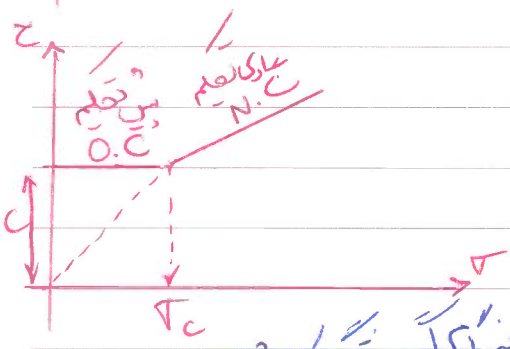 τ
پیش تحکیم
O.C
عادی تحکیم
N.C
C
σ
σc